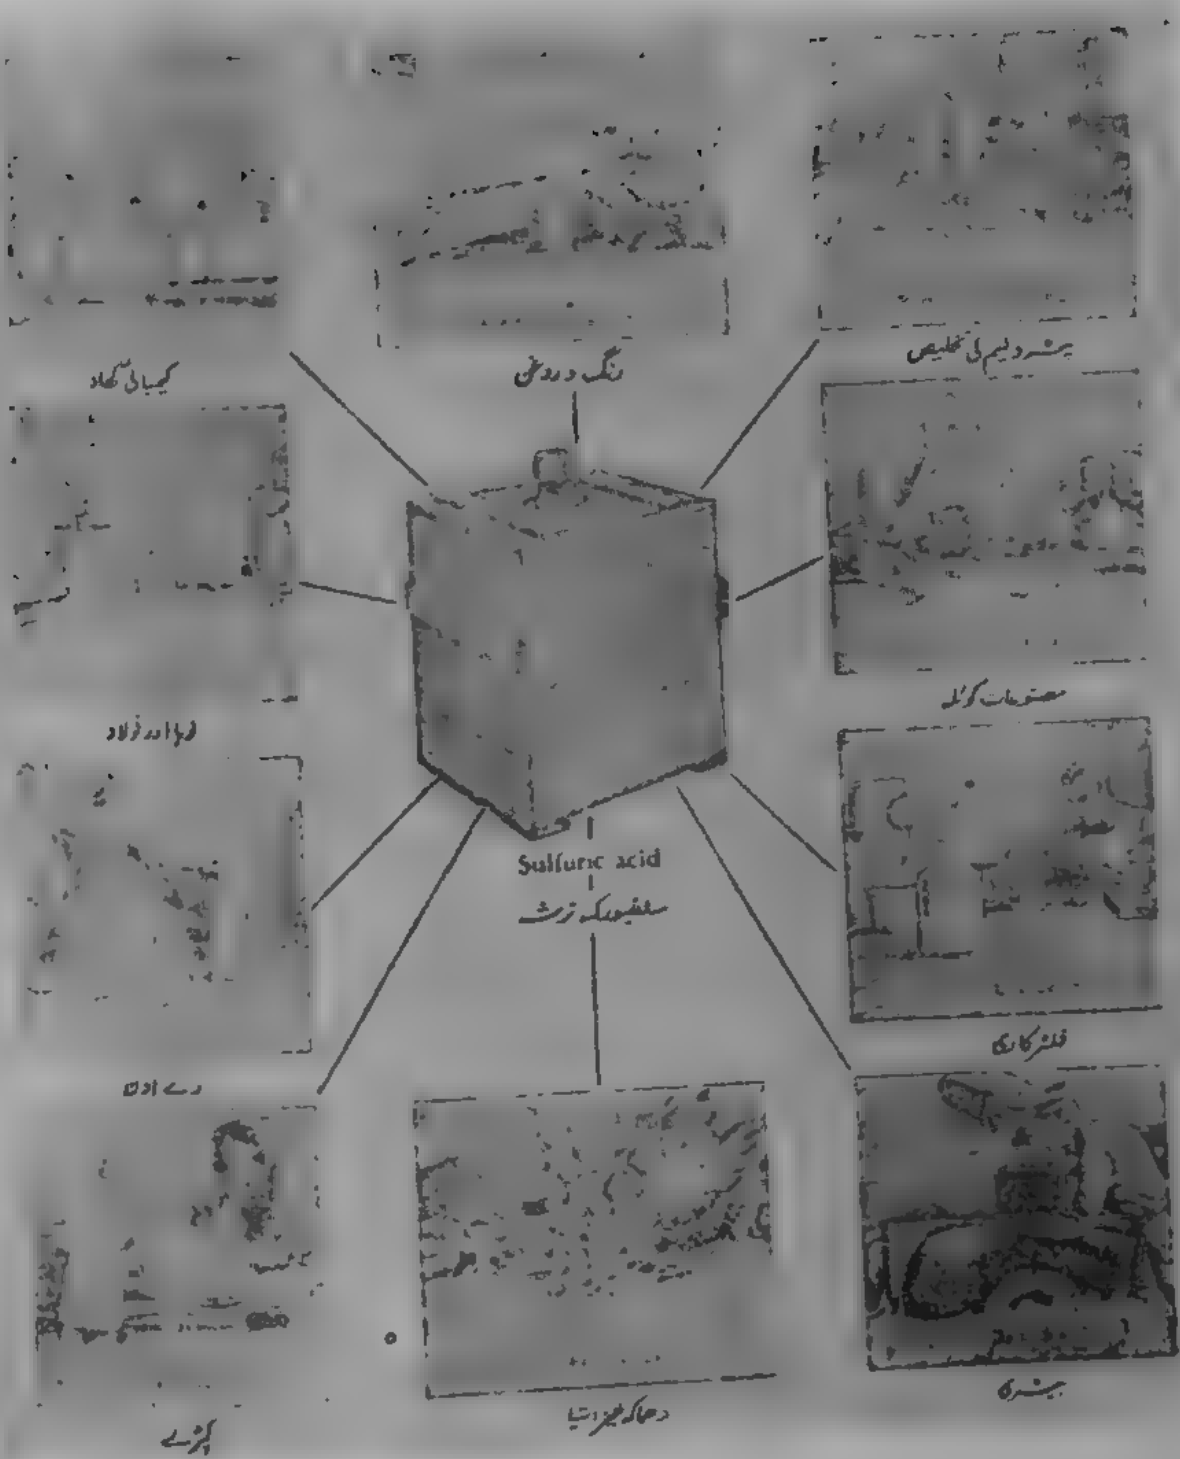 کیمیائی کھاد
رنگ و روغن
پٹرولیم کی تخلیص
لوہا اور فولاد
مصنوعات کوئلہ
Sulfuric acid
سلفیورک ترشہ
فلٹر کاری
رے اون
کپڑے
دھماکہ خیز اشیا
بیٹری